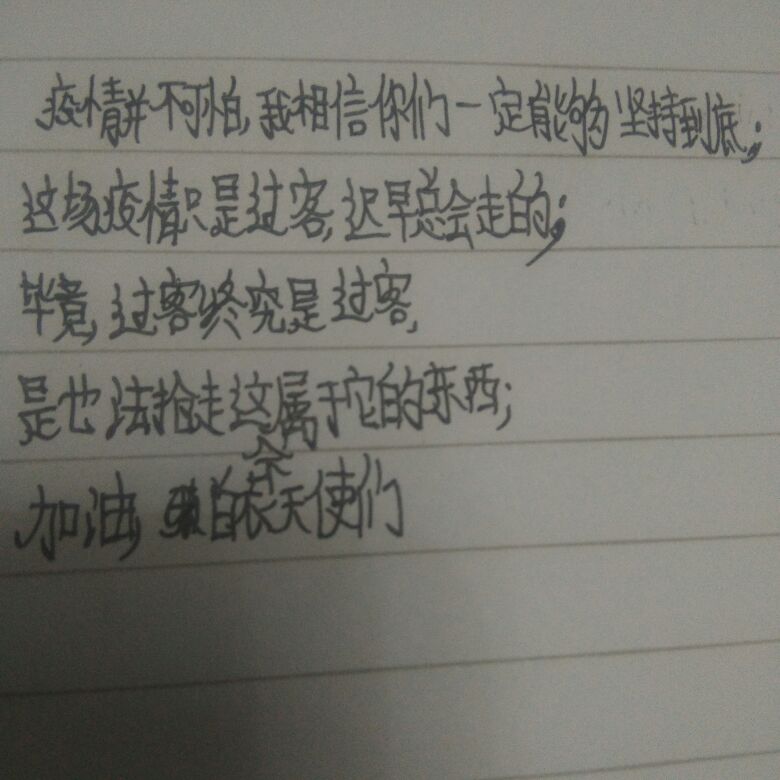 疫情并不可怕,我相信你们一定能够坚持到底;
这场疫情只是过客,迟早总会走的;
毕竟,过客终究是过客,
是也法抢走这属于它的东西;
加油,白衣天使们